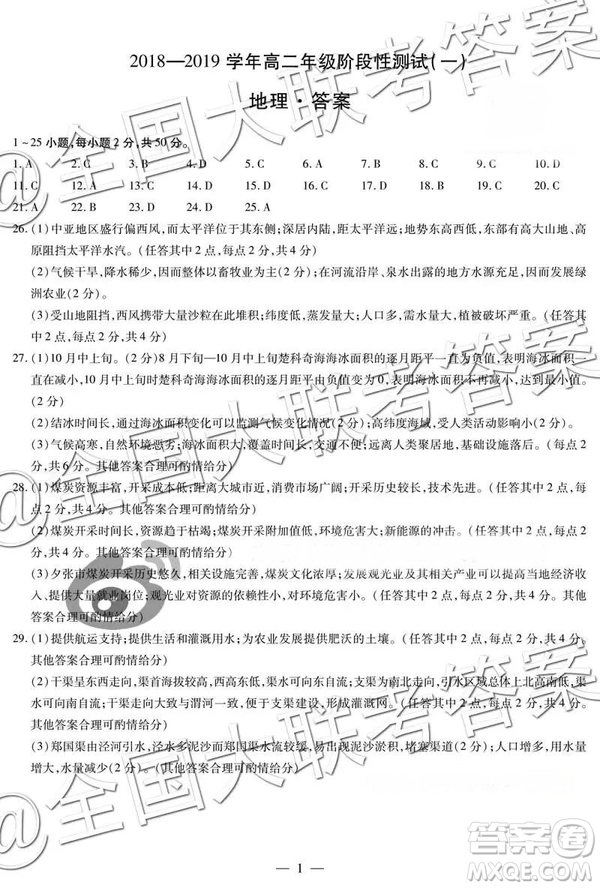 2018—2019 学年高二年级阶段性测试(一)
地理·答案
1~25 小题,每小题 2 分,共 50 分。
1. A 2. C 3. B 4. D 5. D 6. B 7. C 8. C 9. C 10. D
11. C 12. A 13. B 14. D 15. D 16. D 17. B 18. A 19. C 20. D
21. A 22. B 23. D 24. D 25. A
26. (1) 中亚地区盛行偏西风,而太平洋位于其东侧;深居内陆,距太平洋远;地势东高西低,东部有高大山地、高
原阻挡太平洋水汽。(任答其中 2 点,每点 2 分,共 4 分)
(2) 气候干旱,降水稀少,因而大部分区域以畜牧业为主(2 分);在河流沿岸、泉水出露的地方水源充足,因而发展绿
洲农业(2 分)。
(3) 受山地阻挡,西风携带大量沙粒在此堆积;气候干旱,蒸发量大;人口多,需水量大,植被破坏严重。(任答其
中 2 点,每点 2 分,共 4 分)
27. (1) 10 月中上旬。(2 分) 8 月下旬—10 月中上旬楚科奇海海冰面积的逐月距平一直为负值,表明海冰面积一
直在减小,10 月中上旬时楚科奇海海冰面积的逐月距平由负值变为 0,表明海冰面积不再减小,达到最小。
(2 分)
(2) 结冰时间长,通过海冰面积变化可以监测气候变化(2 分);高纬度海域,受人类活动影响小(2 分)。
(3) 气候高寒,自然环境恶劣;海冰面积大,覆盖时间长;交通不便;远离人类聚居地,基础设施落后。(任答其中 3
点,每点 2 分,共 6 分。其他答案合理可酌情给分)
28. (1) 煤炭资源丰富,开采成本低;距离大城市近,消费市场广阔;开采历史较长,技术先进。(任答其中 2 点,每点 2
分,共 4 分。其他答案合理可酌情给分)
(2) 煤炭开采时间长,资源趋于枯竭;煤炭开采附加值低,环境危害大;新能源的冲击。(任答其中 2 点,每点 2
分,共 4 分。其他答案合理可酌情给分)
(3) 夕张市煤炭开采历史悠久,相关设施完善,煤炭文化浓厚;发展观光业及其相关产业可以提高当地经济收
入,提供大量就业岗位;观光业对资源的依赖性小,对环境危害小。(任答其中 2 点,每点 2 分,共 4 分。
其他答案合理可酌情给分)
29. (1) 提供航运支持;提供生活和灌溉用水;为农业发展提供肥沃的土壤。(任答其中 2 点,每点 2 分,共 4 分。
其他答案合理可酌情给分)
(2) 干渠呈东西走向,渠首海拔较高,西高东低;支渠大致由北向南流向东南,引水区域总体上北高南低,因此支
渠流向东南;干渠走向大致与渭河一致;支渠多,形成灌溉网。(任答其中 2 点,每点 2 分,共 4 分。
其他答案合理可酌情给分)
(3) 郑国渠由泾河引水,泾水多泥沙而郑国渠水流较缓,易引起泥沙淤积,堵塞渠道(2 分);人口增多,需水量增
大(2 分)。(其他答案合理可酌情给分)
— 1 —
@全国大联考答案
答案圈
MXQE.COM